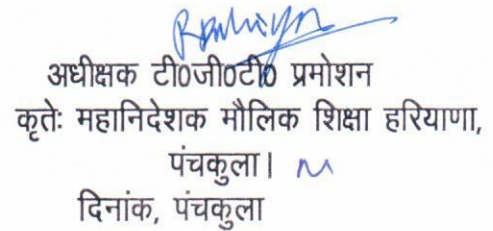 अधीक्षक टी0जी0टी0 प्रमोशन
कृतेः महानिदेशक मौलिक शिक्षा हरियाणा,
पंचकुला।
दिनांक, पंचकुला